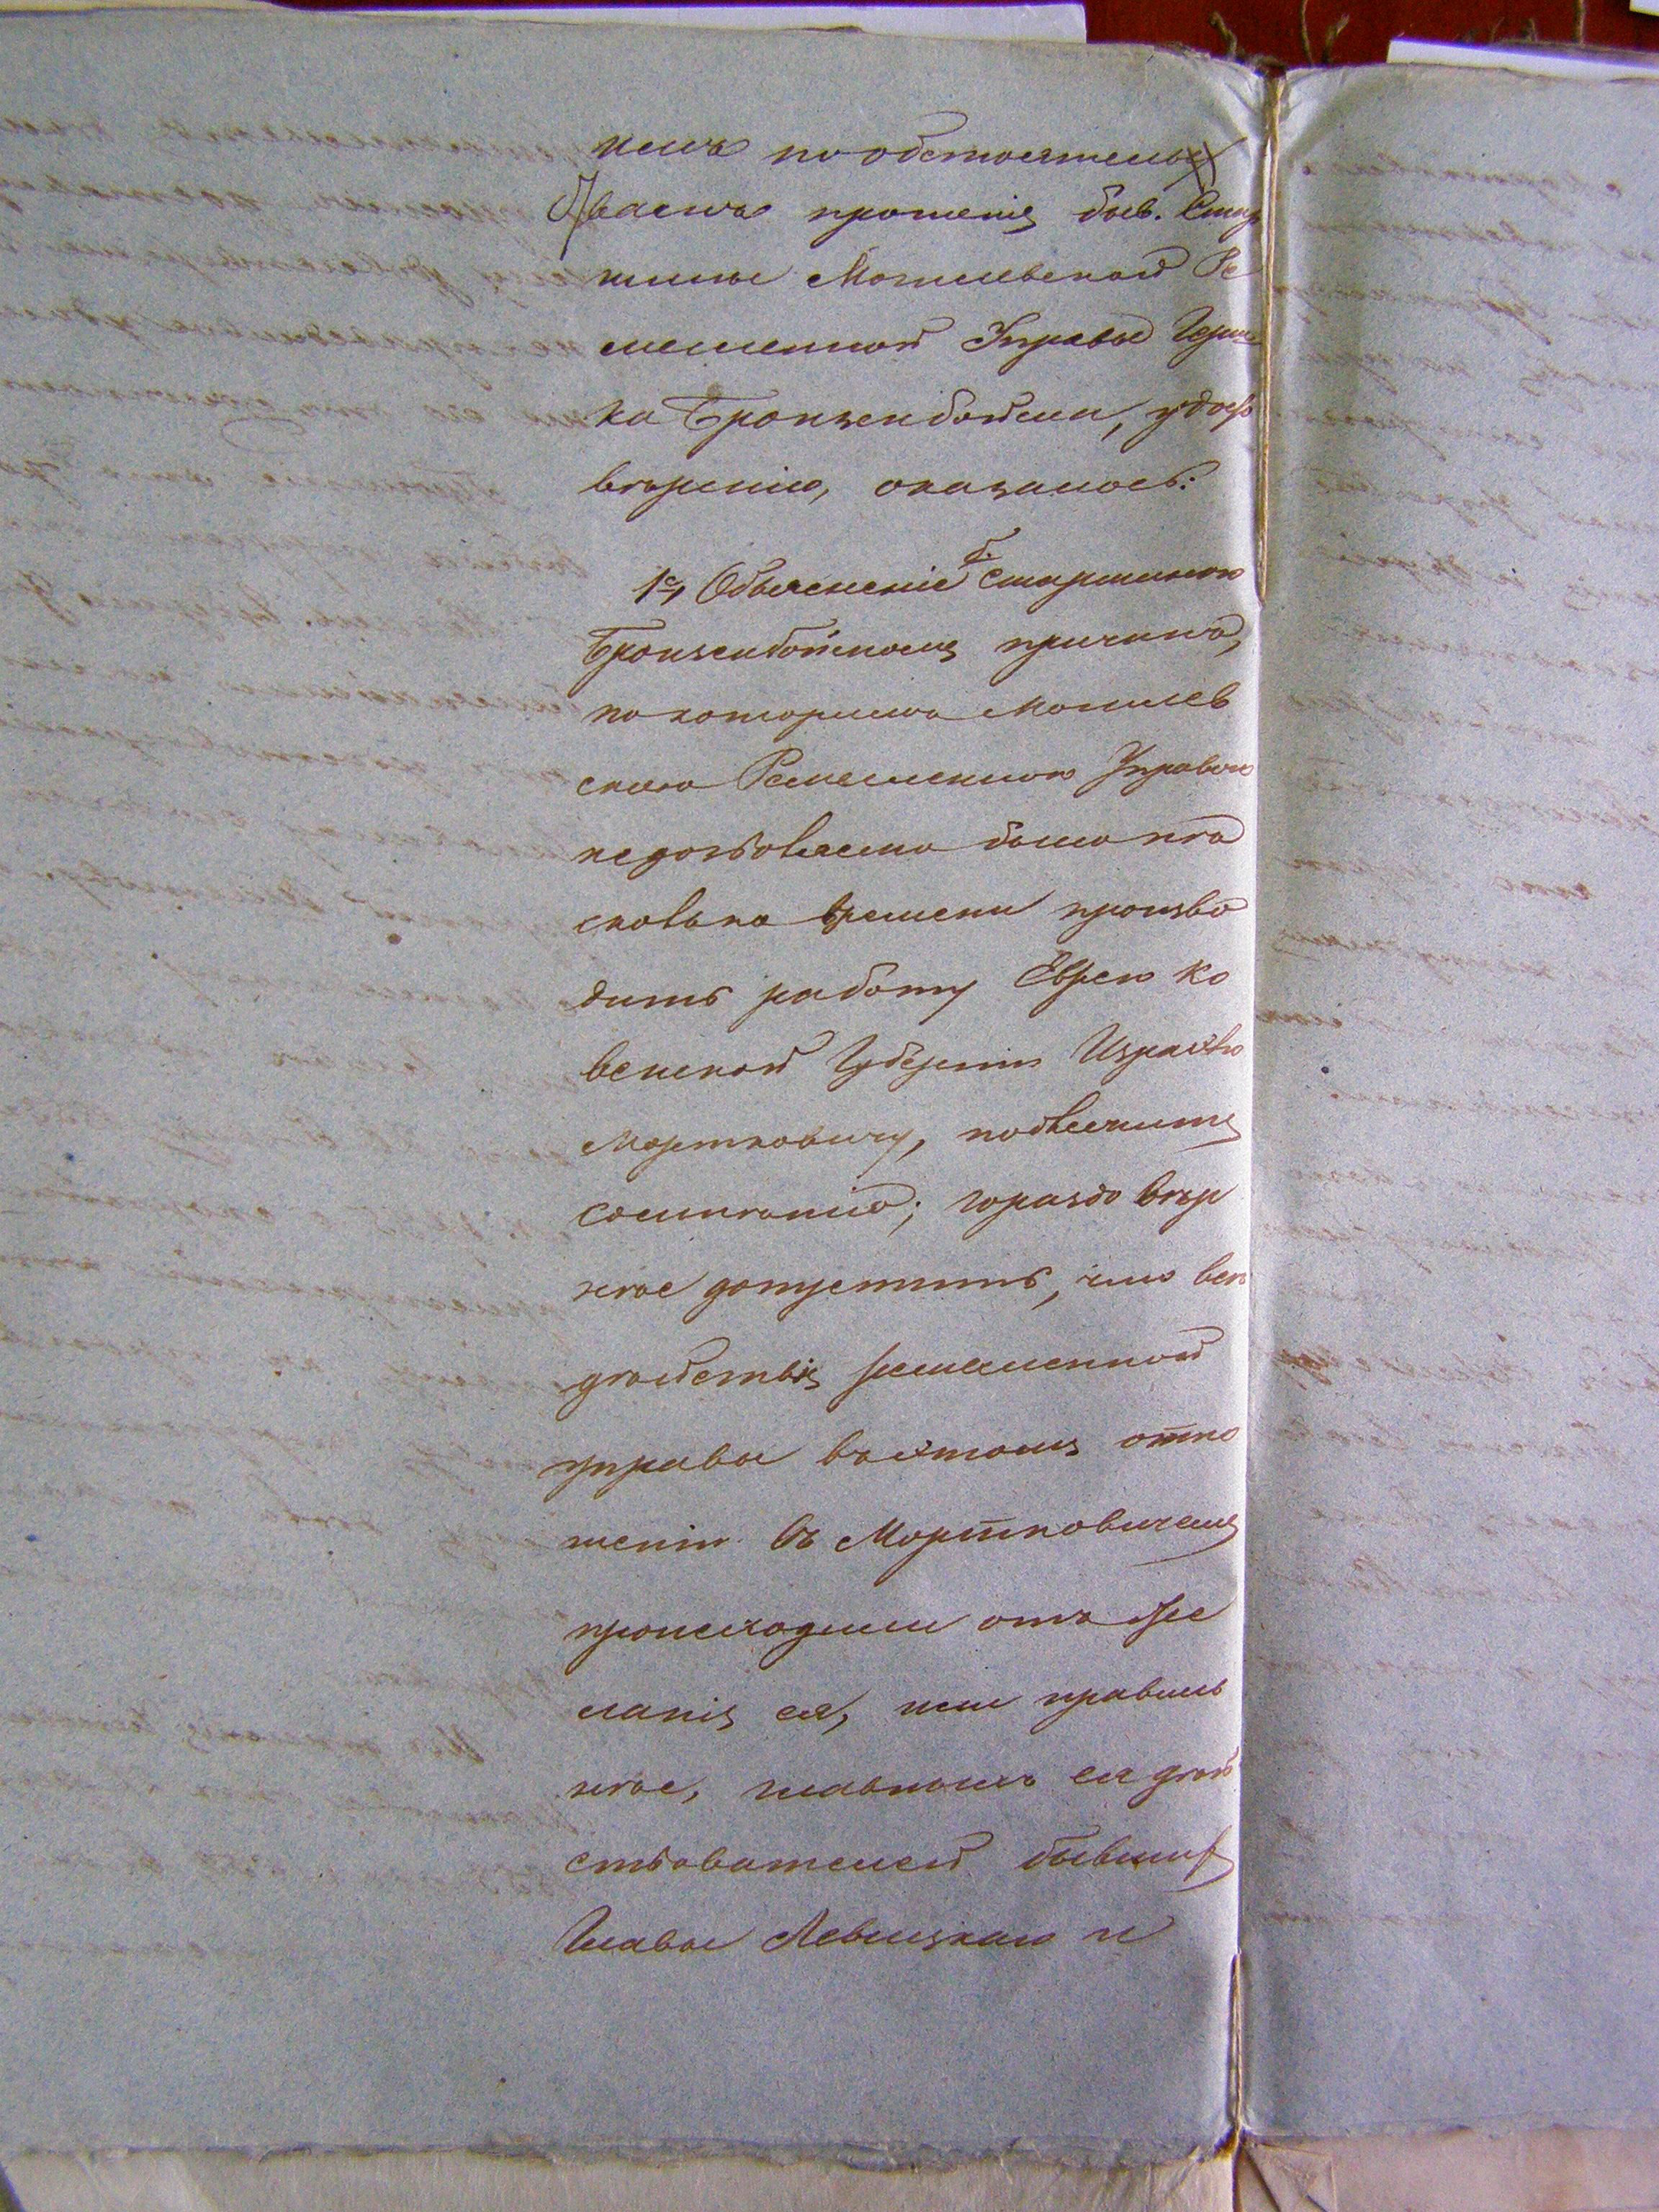 немъ по обстоятельс
тваемъ прошенія быв. Стар
шины Могилевской Ре
месленной Управы Герш
ка Бронзенбойма, удосто
вѣренію, оказалось:
1е, Объясненіе б. старшиною
Бронзенбоймомъ причинъ,
по которымъ Могилев
скою Ремесленною Управою
недозволяемо было нѣ
сколько времени произво
дить работу Еврею Ко
венской Губерніи Израелю
Мортковичу, подлежитъ
сомнѣнію; гораздо вѣр
нѣе допустить, что всѣ
дѣйствія ремесленной
управы въ этомъ отно
шеніи съ Мортковичемъ
происходили отъ же
ланія ея, или правиль
нѣе, главныхъ ея дѣй
ствователей бывшихъ
Главы Левицкаго и